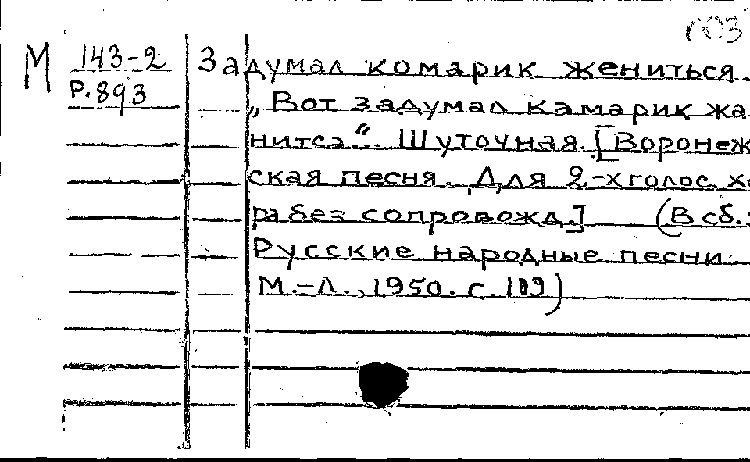 М 143-2 Задумал комарик жениться.
Р.893 „Вот задумал камарик жа
нитсэ“. Шуточная. [Воронеж
ская песня. Для 2-х голос. х
ра без сопровожд.] (В сб.:
Русские народные песни.
М.-Л., 1950. с. 119)